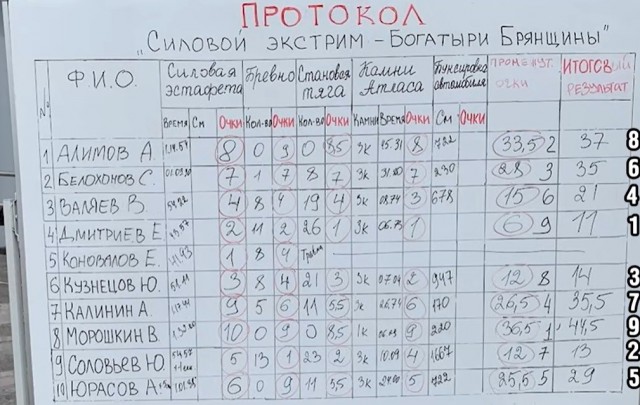 ПРОТОКОЛ
„Силовой экстрим – Богатыри Брянщины"
№ Ф.И.О. Силовая эстафета Бревно Становая тяга Камни Атласа Буксировка автомобиля ПРОМЕЖУТ. ОЧКИ ИТОГОВЫЙ РЕЗУЛЬТАТ
ВРЕМЯ См ОЧКИ КОЛ-ВО ОЧКИ КОЛ-ВО ОЧКИ КАМНИ ВРЕМЯ ОЧКИ См ОЧКИ
1 АЛИМОВ А. 8 0 9 0 8,5 3к 15.31 8 722 33,5 2 37 8
2 БЕЛОХОНОВ С. 7 1 7 8 7 3к 7 230 28 3 35 6
3 ВАЛЯЕВ В 4 8 4 19 4 3к 3 678 15 6 21 4
4 ДМИТРИЕВ Е. 2 11 2 26 1 3к 06.73 1 6 9 11 1
5 КОНОВАЛОВ Е. 1 8 4 Травма
6 КУЗНЕЦОВ Ю. 3 8 4 21 3 3к 07.04 2 947 12 8 14 3
7 КАЛИНИН А. 9 5 6 11 5,5 3к 6 170 26,5 4 35,5 7
8 МОРОШКИН В. 10 0 9 0 8,5 1к 9 220 36,5 1 44,5 9
9 СОЛОВЬЕВ Ю. 5 13 1 23 2 3к 10.09 4 1667 12 7 13 2
10 ЮРАСОВ А. 6 0 9 11 5,5 3к 5 722 25,5 5 29 5